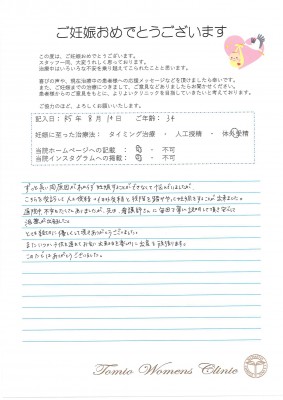 ご妊娠おめでとうございます
この度は、ご妊娠おめでとうございます。
スタッフ一同、大変うれしく思っております。
治療中はいろいろな不安を乗り越えてこられたことと思います。
喜びの声や、現在治療中の患者様への応援メッセージなどを頂けましたら幸いです。
また、妊娠までの治療につきまして、ご意見などありましたらお聞かせください。
患者様からのご意見をもとに、よりよいクリニックを目指していきたいと考えております。
ご協力のほど、よろしくお願いいたします。
記入日: R5年 8月 19日 ご年齢: 34
妊娠に至った治療法: タイミング治療 ・ 人工授精 ・ 体外受精
当院ホームページへの記載: 可 ・ 不可
当院インスタグラムへの掲載: 可 ・ 不可
ずっと長い間原因がわからず妊娠することができなくて悩んでいましたが、
こちらを受診して人工授精・体外受精と段階を踏み
妊娠をすることが出来ました。
通院中不安もたくさんありましたが、先生、看護師さんに毎回丁寧に説明して頂き安心して
治療が出来ました。
とても親切に優しくして頂きありがとうございました。
また
ありがとうございました。
Tomio Womens Clinic